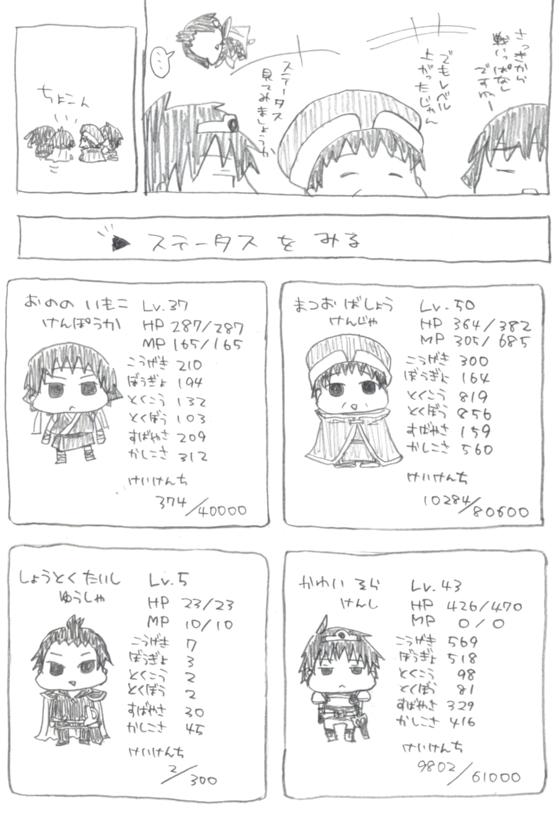 さっきから
戦いっぱなし
ですねー
でもレベル
上がったじゃん
ステータス
見てみましょうか
ちょこん
ステータスをみる
おののいもこ Lv.37
けんぽうか
HP 287/287
MP 165/165
こうげき 210
ぼうぎょ 194
とくこう 132
とくぼう 103
すばやさ 209
かしこさ 312
けいけんち
374/40000
まつおばしょう Lv.50
けんじゃ
HP 364/382
MP 305/685
こうげき 300
ぼうぎょ 164
とくこう 819
とくぼう 856
すばやさ 159
かしこさ 560
けいけんち
10284/80600
しょうとくたいし Lv.5
ゆうしゃ
HP 23/23
MP 10/10
こうげき 7
ぼうぎょ 3
とくこう 2
とくぼう 2
すばやさ 30
かしこさ 45
けいけんち
2/300
かわいそら Lv.43
けんし
HP 426/470
MP 0/0
こうげき 569
ぼうぎょ 518
とくこう 98
とくぼう 81
すばやさ 329
かしこさ 416
けいけんち
9802/61000